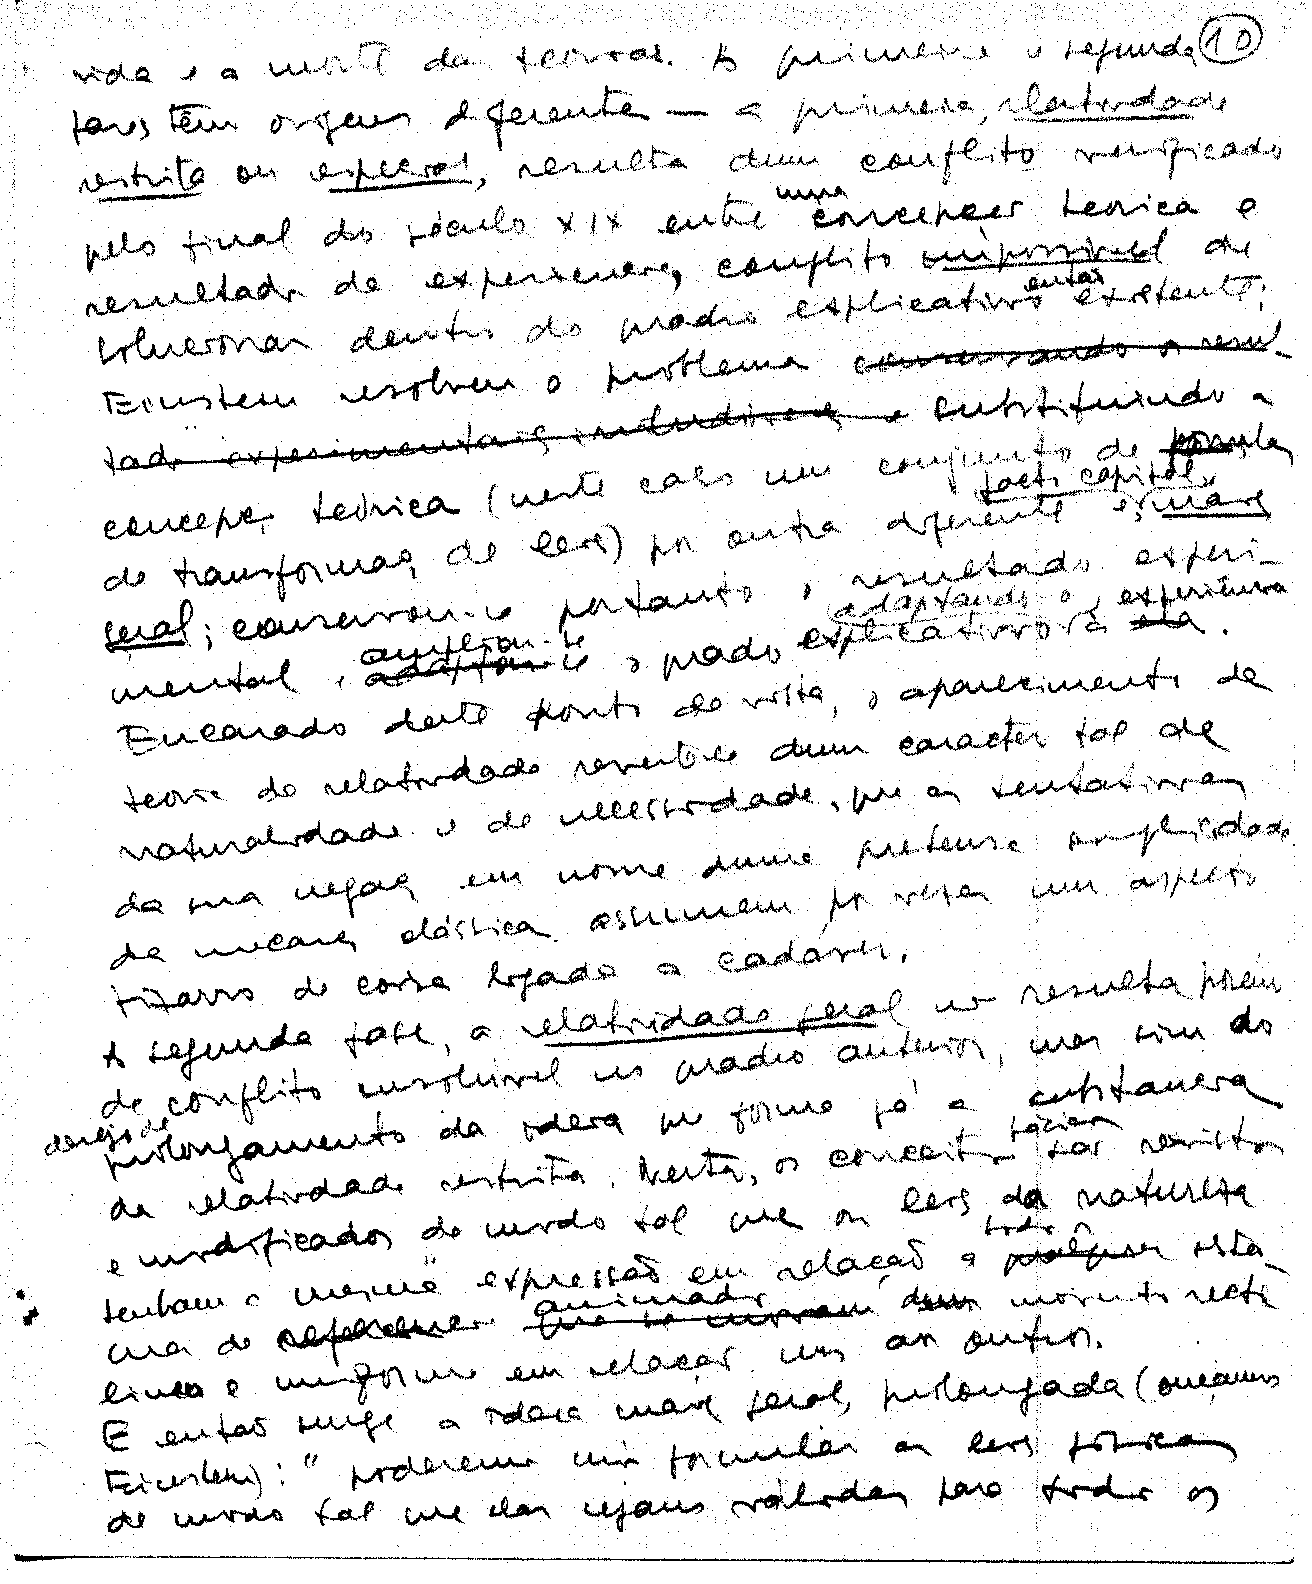 10
vida e a morte das teorias. A primeira e segunda
fases têm origens diferentes — a primeira, relatividade
restrita ou especial, resulta dum conflito verificado
pelo final do século XIX entre uma concepção teórica e
resultados de experiências, conflito impossível de
solucionar dentro do quadro explicativo então existente;
Einstein resolveu o problema conservando os resul-
tados experimentais indiscutíveis e substituindo a
concepção teórica (neste caso um conjunto de fórmulas
de transformação de leis) por outra diferente e, facto capital, mais
geral; conservou-se portanto o resultado experi-
mental, ampliou-se adaptou-se o quadro explicativo adaptando-o à experiência a ela.
Encarado deste ponto de vista, o aparecimento da
teoria da relatividade reveste-se dum caracter tal de
naturalidade e de necessidade, que as tentativas
da sua negação em nome duma pretensa simplicidade
da mecanica clássica assumem por vezes um aspecto
bizarro de coisa ligada a cadaver.
A segunda fase, a relatividade geral não resulta porém
de conflito insoluvel no quadro anterior, mas sim do
desejo de prolongamento da ideia que forma já a substancia
da relatividade restrita. Nesta, os conceitos básicos são revistos
e modificados de modo tal que as leis da natureza
tenham a mesma expressão em relação a todos os qualquer siste
mas de referencia animados que se movam dum movimento recti
lineo e uniforme em relação uns aos outros.
E então surge a ideia mais geral, prolongada (ouçamos
Einstein): "poderemos nós formular as leis físicas
de modo tal que elas sejam válidas para todos os